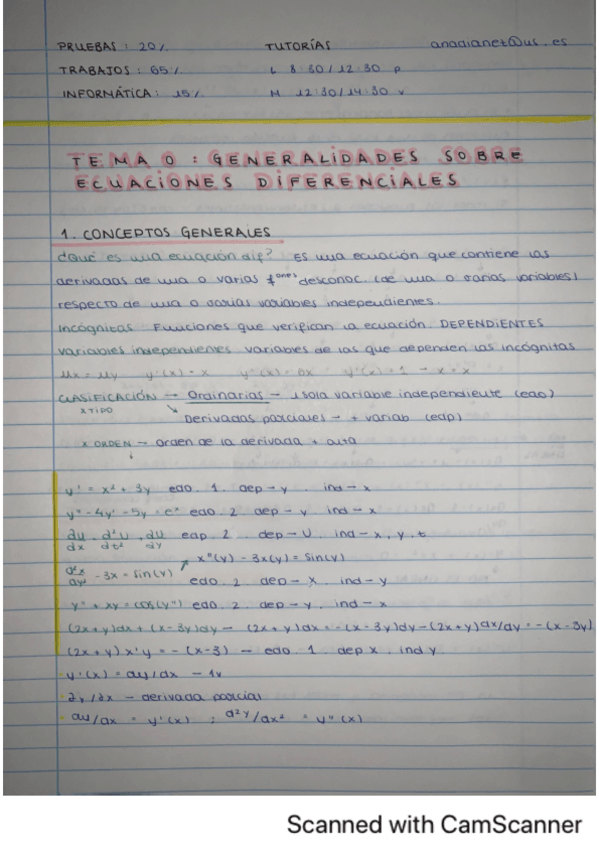 PRUEBAS : 20% TUTORÍAS anadianez@us.es
TRABAJOS : 65% L 8:30/12:30 p
INFORMÁTICA : 15% M 12:30/14:30 v
TEMA 0 : GENERALIDADES SOBRE
ECUACIONES DIFERENCIALES
1. CONCEPTOS GENERALES
¿Qué es una ecuación dif? Es una ecuación que contiene las
derivadas de una o varias f ones desconoc. (de una o varias variables)
respecto de una o varias variables independientes.
Incógnitas Funciones que verifican la ecuación. DEPENDIENTES
variables independientes variables de las que dependen las incógnitas
ux = uy y'(x) = x
CLASIFICACIÓN → Ordinarias — 1 sola variable independiente (edo)
x TIPO ↘ Derivadas parciales — + variab (edp)
x ORDEN — Orden de la derivada + alta
↓
y' = x² + 3y edo. 1. dep – y. ind – x
y'' - 4y' - 5y = eˣ edo. 2 dep – y ind – x
∂u/∂x . ∂²u/∂t² . ∂u/∂y eap. 2. dep – U. ind – x, y, t
d²x/dy² - 3x = sin(y) ↗ x''(y) - 3x(y) = sin(y)
edo. 2 dep – x. ind – y
y'' + xy = cos(y'') edo. 2. dep – y. ind – x
(2x+y)dx + (x-3y)dy — (2x+y)dx = -(x-3y)dy — (2x+y)dx/dy = -(x-3y)
(2x+y) x'y = -(x-3) — edo. 1. dep x. ind y
y'(x) = dy/dx — 1v
∂y/∂x — derivada parcial
dy/dx = y'(x) ; d²y/dx² = y''(x)
Scanned with CamScanner